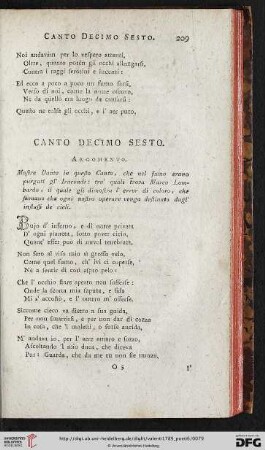 CANTO DECIMO SESTO. 209
Noi andavam per lo vespero attenti,
Oltre, quanto potén gli occhi allungarsi,
Contra i raggi serotini e lucenti:
Ed ecco a poco a poco un fumo farsi,
Verso di noi, come la notte oscuro,
Nè da quello era luogo da cansarsi:
Questo ne tolse gli occhi, e l'aer puro.
CANTO DECIMO SESTO.
ARGOMENTO.
Mostra Dante in questo Canto, che nel fumo erano
purgati gl' Iracondi: tra' quali trova Marco Lom-
bardo: il quale gli dimostra l' error di coloro, che
stimano che ogni nostra operata venga destinata dagl'
influssi de' cieli.
Bujo d'inferno, e di notte privata
D' ogni pianeta, sotto pover cielo,
Quant' esser può di nuvol tenebrata,
Non fece al viso mio sì grosso velo,
Come quel fumo, ch' ivi ci coperse,
Nè a sentir di così aspro pelo:
Che l' occhio stare aperto non sofferse:
Onde la scorta mia saputa, e fida
Mi s' accostò, e l' omero m' offerse.
Siccome cieco va dietro a sua guida,
Per non smarrirsi, e per non dar di cozzo
In cosa, che 'l molesti, o forse ancida,
M' andava io, per l' aere amaro e sozzo,
Ascoltando 'l mio duca, che diceva
Pur: Guarda, che da me tu non sie mozzo.
O 5 I'